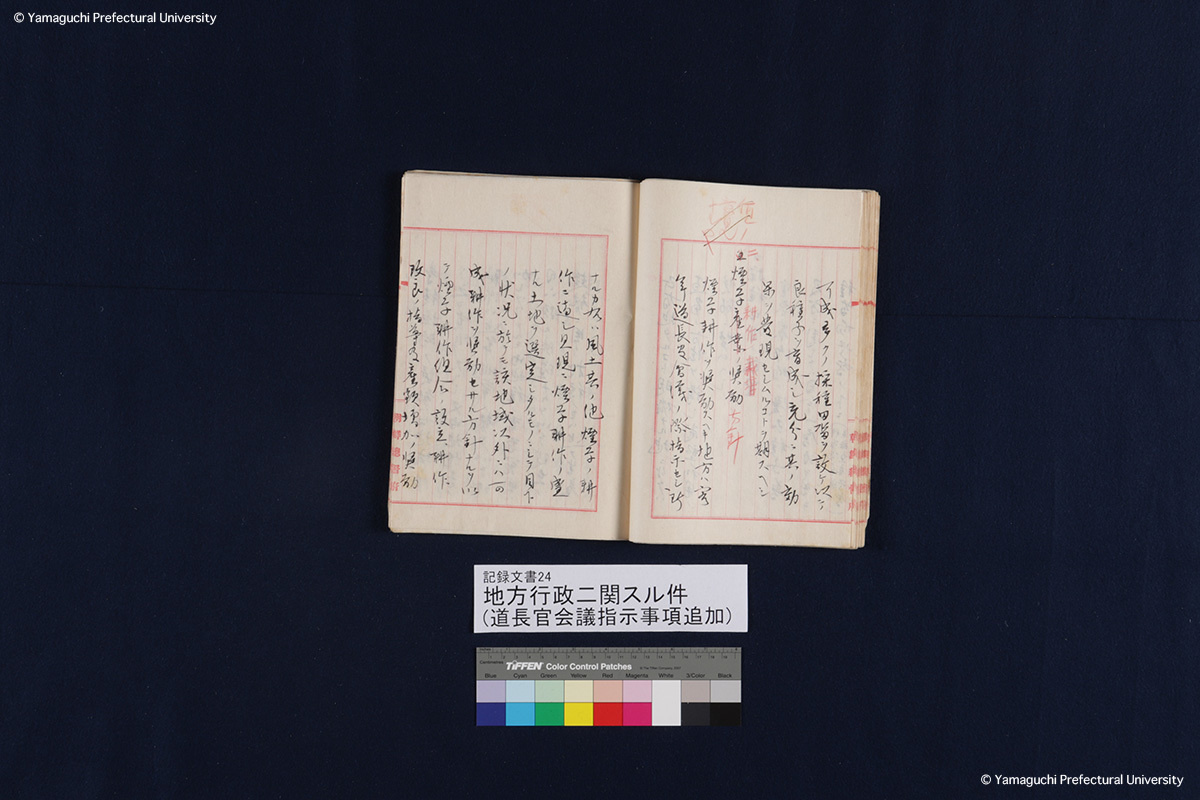 © Yamaguchi Prefectural University
可成多クノ採種田畓ヲ設ケ以テ
良種子ヲ育成シ充分ニ其ノ効
果ヲ発現セシムルコトヲ期スヘシ
二、煙草産業ノ奨励方針
煙草耕作ヲ奨励スヘキ地方ハ客
年道長官会議ノ際指示セシ所
ナルカ右ハ風土其ノ他煙草ノ耕
作ニ適シ且現ニ煙草耕作ノ盛
ナル土地ヲ選定シタルモノニシテ目下
ノ状況ニ於テハ該地域以外ニハ可
成耕作ヲ奨励セサル方針ナルヲ以
テ煙草耕作組合ノ設立耕作
改良ノ指導及産額増加ノ奨励
朝鮮総督府
記録文書24
地方行政ニ関スル件
(道長官会議指示事項追加)
TIFFEN Color Control Patches
Blue Cyan Green Yellow Red Magenta White 3/Color Black
© Yamaguchi Prefectural University